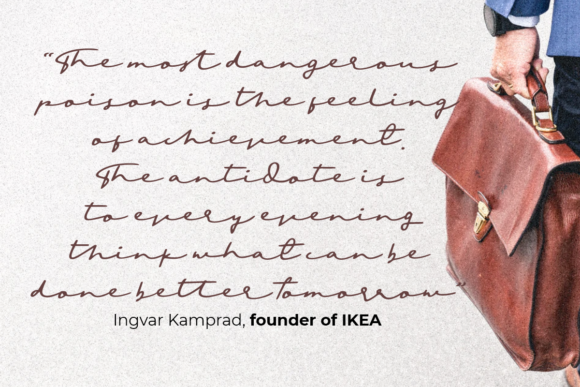 “The most dangerous
poison is the feeling
of achievement.
The antidote is
to every evening
think what can be
done better tomorrow”
Ingvar Kamprad, founder of IKEA